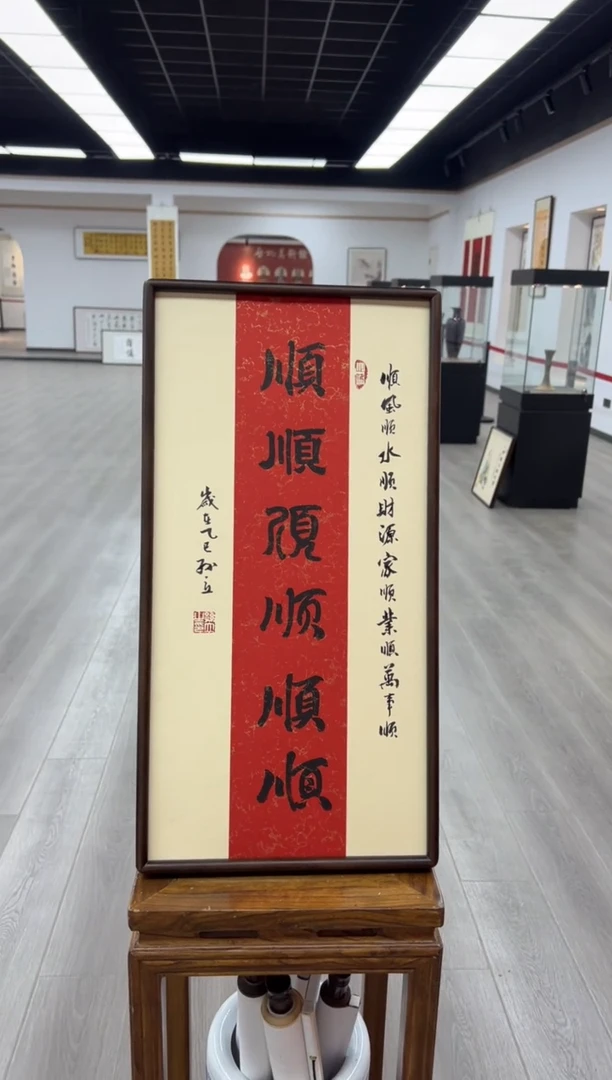 順風順水順財源家順業順萬事順
順
順
順
顺
順
順
歲在乙巳孙立